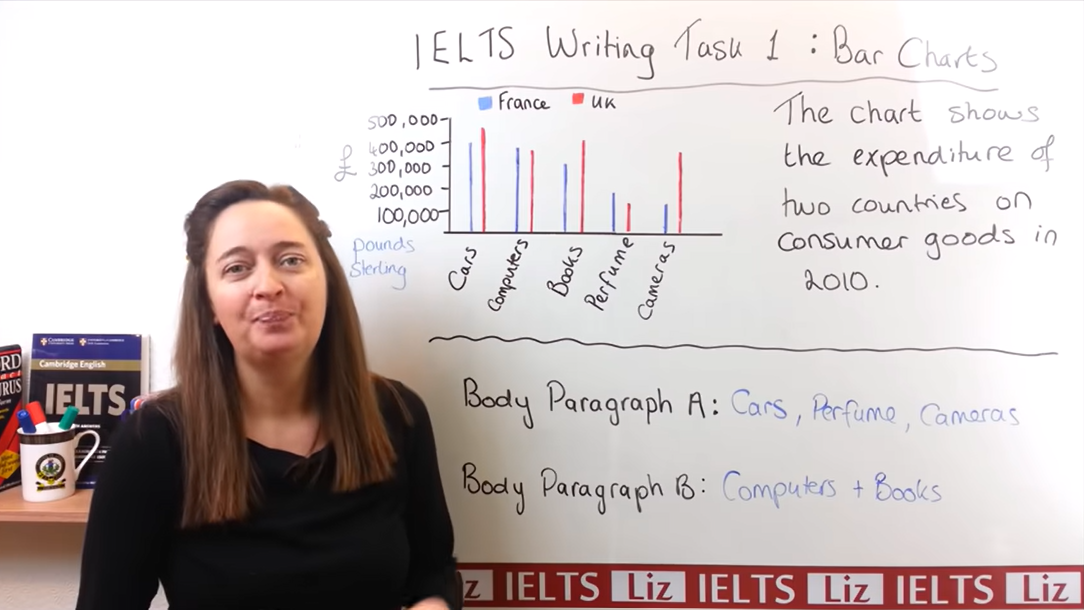 IELTS Writing Task 1 : Bar Charts
France UK
500,000
400,000
£
300,000
200,000
100,000
pounds
Sterling
Cars
Computers
Books
Perfume
Cameras
The chart shows
the expenditure of
two countries on
consumer goods in
2010.
Body Paragraph A: Cars, Perfume, Cameras
Body Paragraph B: Computers + Books
Cambridge English
IELTS
IELTS Liz IELTS Liz IELTS Liz